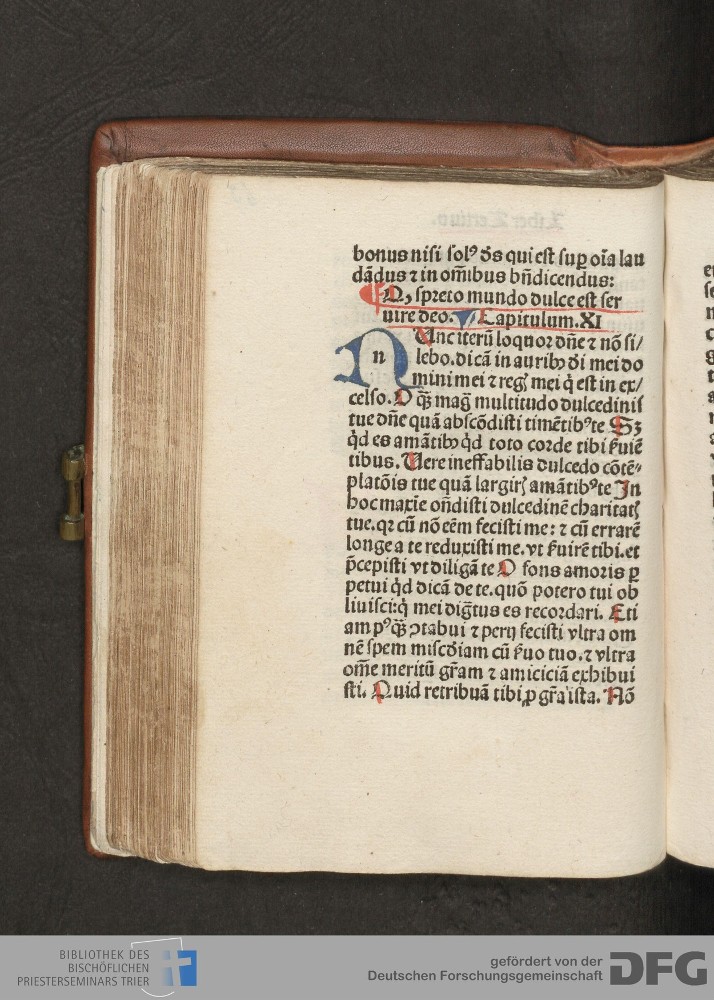 bonus nisi solꝰ ds̄ qui est suꝑ oīa lau
dādus ⁊ in om̄ibus bn̄dicendus:
Qꝫ spreto mundo dulce est ser
uire deo. Capitulum. XI
n
Unc iterū loquor dn̄e ⁊ nō si/
lebo. dicā in auribꝫ di mei do
mini mei ⁊ regꝭ mei q̇ est in ex/
celso. O qꝫ̄ maḡ multitudo dulcedinis
tue dn̄e quā abscōdisti timētibꝰ te Sꝫ
qd̓ es amātibꝫ qd̓ toto corde tibi ẜuiē
tibus. Uere ineffabilis dulcedo cōtē-
platōis tue quā largirꝭ amātibꝰ te In
hoc maxīe on̄disti dulcedinē charitatꝭ
tue. qꝛ cū nō eēm fecisti me: ⁊ cū errarē
longe a te reduxisti me. vt ẜuirē tibi. et
p̄cepisti vt diligā te O fons amoris ꝑ
petui qd̓ dicā de te. quō potero tui ob
liuisci: q̇ mei diḡtus es recordari. Eti
am pꝰ qꝫ̄ ꝯtabui ⁊ perij fecisti vltra om
nē spem misc̄diam cū ẜuo tuo. ⁊ vltra
om̄e meritū gr̄am ⁊ amiciciā exhibui
sti. Quid retribuā tibi ꝓ gr̄a ista. Nō
BIBLIOTHEK DES
BISCHÖFLICHEN
PRIESTERSEMINARS TRIER
gefördert von der
Deutschen Forschungsgemeinschaft
DFG